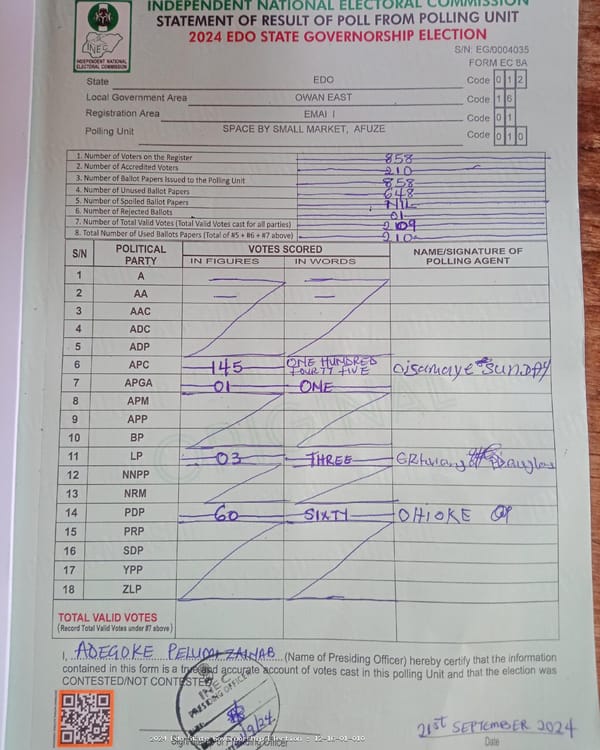 INDEPENDENT NATIONAL ELECTORAL COMMISSION
STATEMENT OF RESULT OF POLL FROM POLLING UNIT
2024 EDO STATE GOVERNORSHIP ELECTION
INEC
INDEPENDENT NATIONAL ELECTORAL COMMISSION
S/N: EG/0004035
FORM EC 8A
State EDO Code 0 1 2
Local Government Area OWAN EAST Code 1 6
Registration Area EMAI I Code 0 1
Polling Unit SPACE BY SMALL MARKET, AFUZE Code 0 1 0
1. Number of Voters on the Register 858
2. Number of Accredited Voters 210
3. Number of Ballot Papers Issued to the Polling Unit 858
4. Number of Unused Ballot Papers 648
5. Number of Spoiled Ballot Papers NIL
6. Number of Rejected Ballots 01
7. Number of Total Valid Votes (Total Valid Votes cast for all parties) 209
8. Total Number of Used Ballots Papers (Total of #5 + #6 + #7 above) 210
S/N POLITICAL PARTY VOTES SCORED NAME/SIGNATURE OF POLLING AGENT
IN FIGURES IN WORDS
1 A
2 AA
3 AAC
4 ADC
5 ADP
6 APC 145 ONE HUNDRED FOURTY FIVE SUNDAY
7 APGA 01 ONE
8 APM
9 APP
10 BP
11 LP 03 THREE
12 NNPP
13 NRM
14 PDP 60 SIXTY OHIOKE
15 PRP
16 SDP
17 YPP
18 ZLP
TOTAL VALID VOTES
(Record Total Valid Votes under #7 above)
I, ADEGOKE PELUMI ZAINAB (Name of Presiding Officer) hereby certify that the information
contained in this form is a true and accurate account of votes cast in this polling Unit and that the election was
CONTESTED/NOT CONTESTED
INEC
PRESIDING OFFICER
21st SEPTEMBER 2024
Date